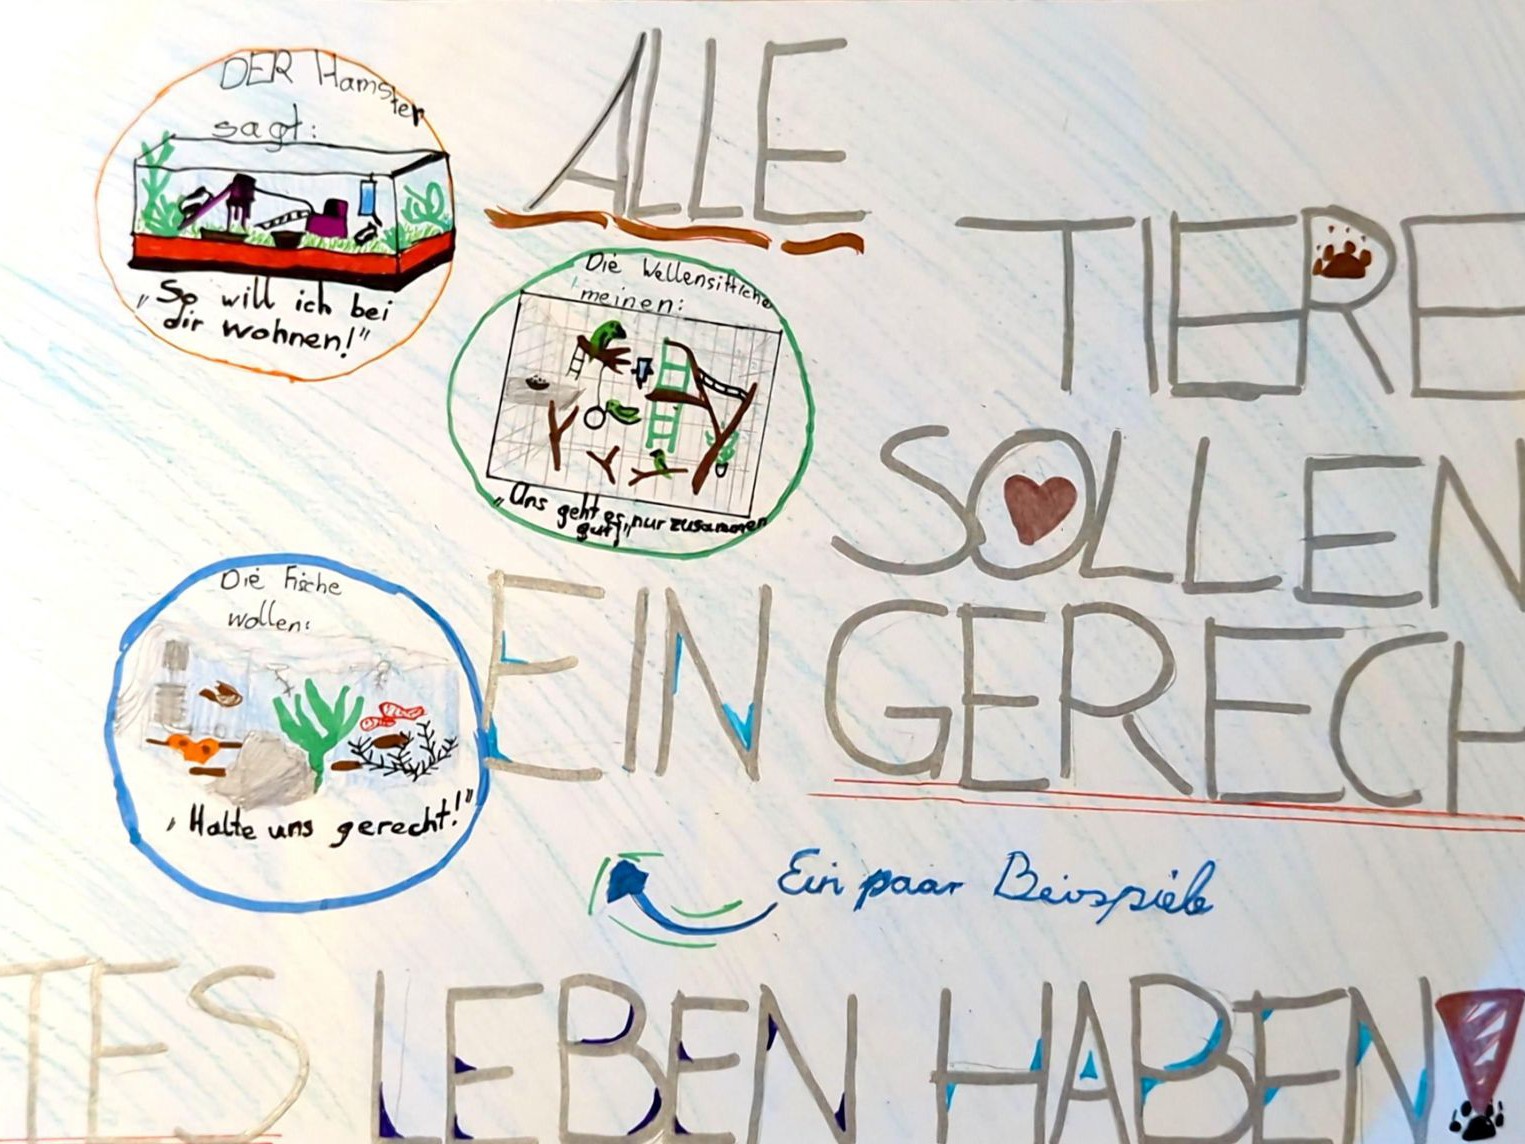 DER Hamster
sagt:
„So will ich bei
dir wohnen!"
ALLE
TIERE
Die Wellensittiche
meinen:
„Uns geht es nur zusammen
gut!"
SOLLEN
Die Fische
wollen:
„Halte uns gerecht!"
EIN GERECH
Ein paar Beispiele
TES LEBEN HABEN!